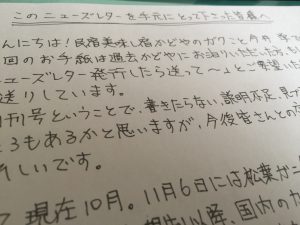 このニューズレターを手元にとって下さった皆様へ
んにちは！民宿美味し宿かどやのガクこと今井
回のお手紙は過去かどやにお泊りいただいた方、も
ニューズレター発行したら送って〜」とご要望いた
送りしています。
刊号ということで、書きたらない、説明不足、見づ
ころもあるかと思いますが、今後皆さんとの
しいです。
現在10月。11月6日には松葉ガニ
以降、国内の